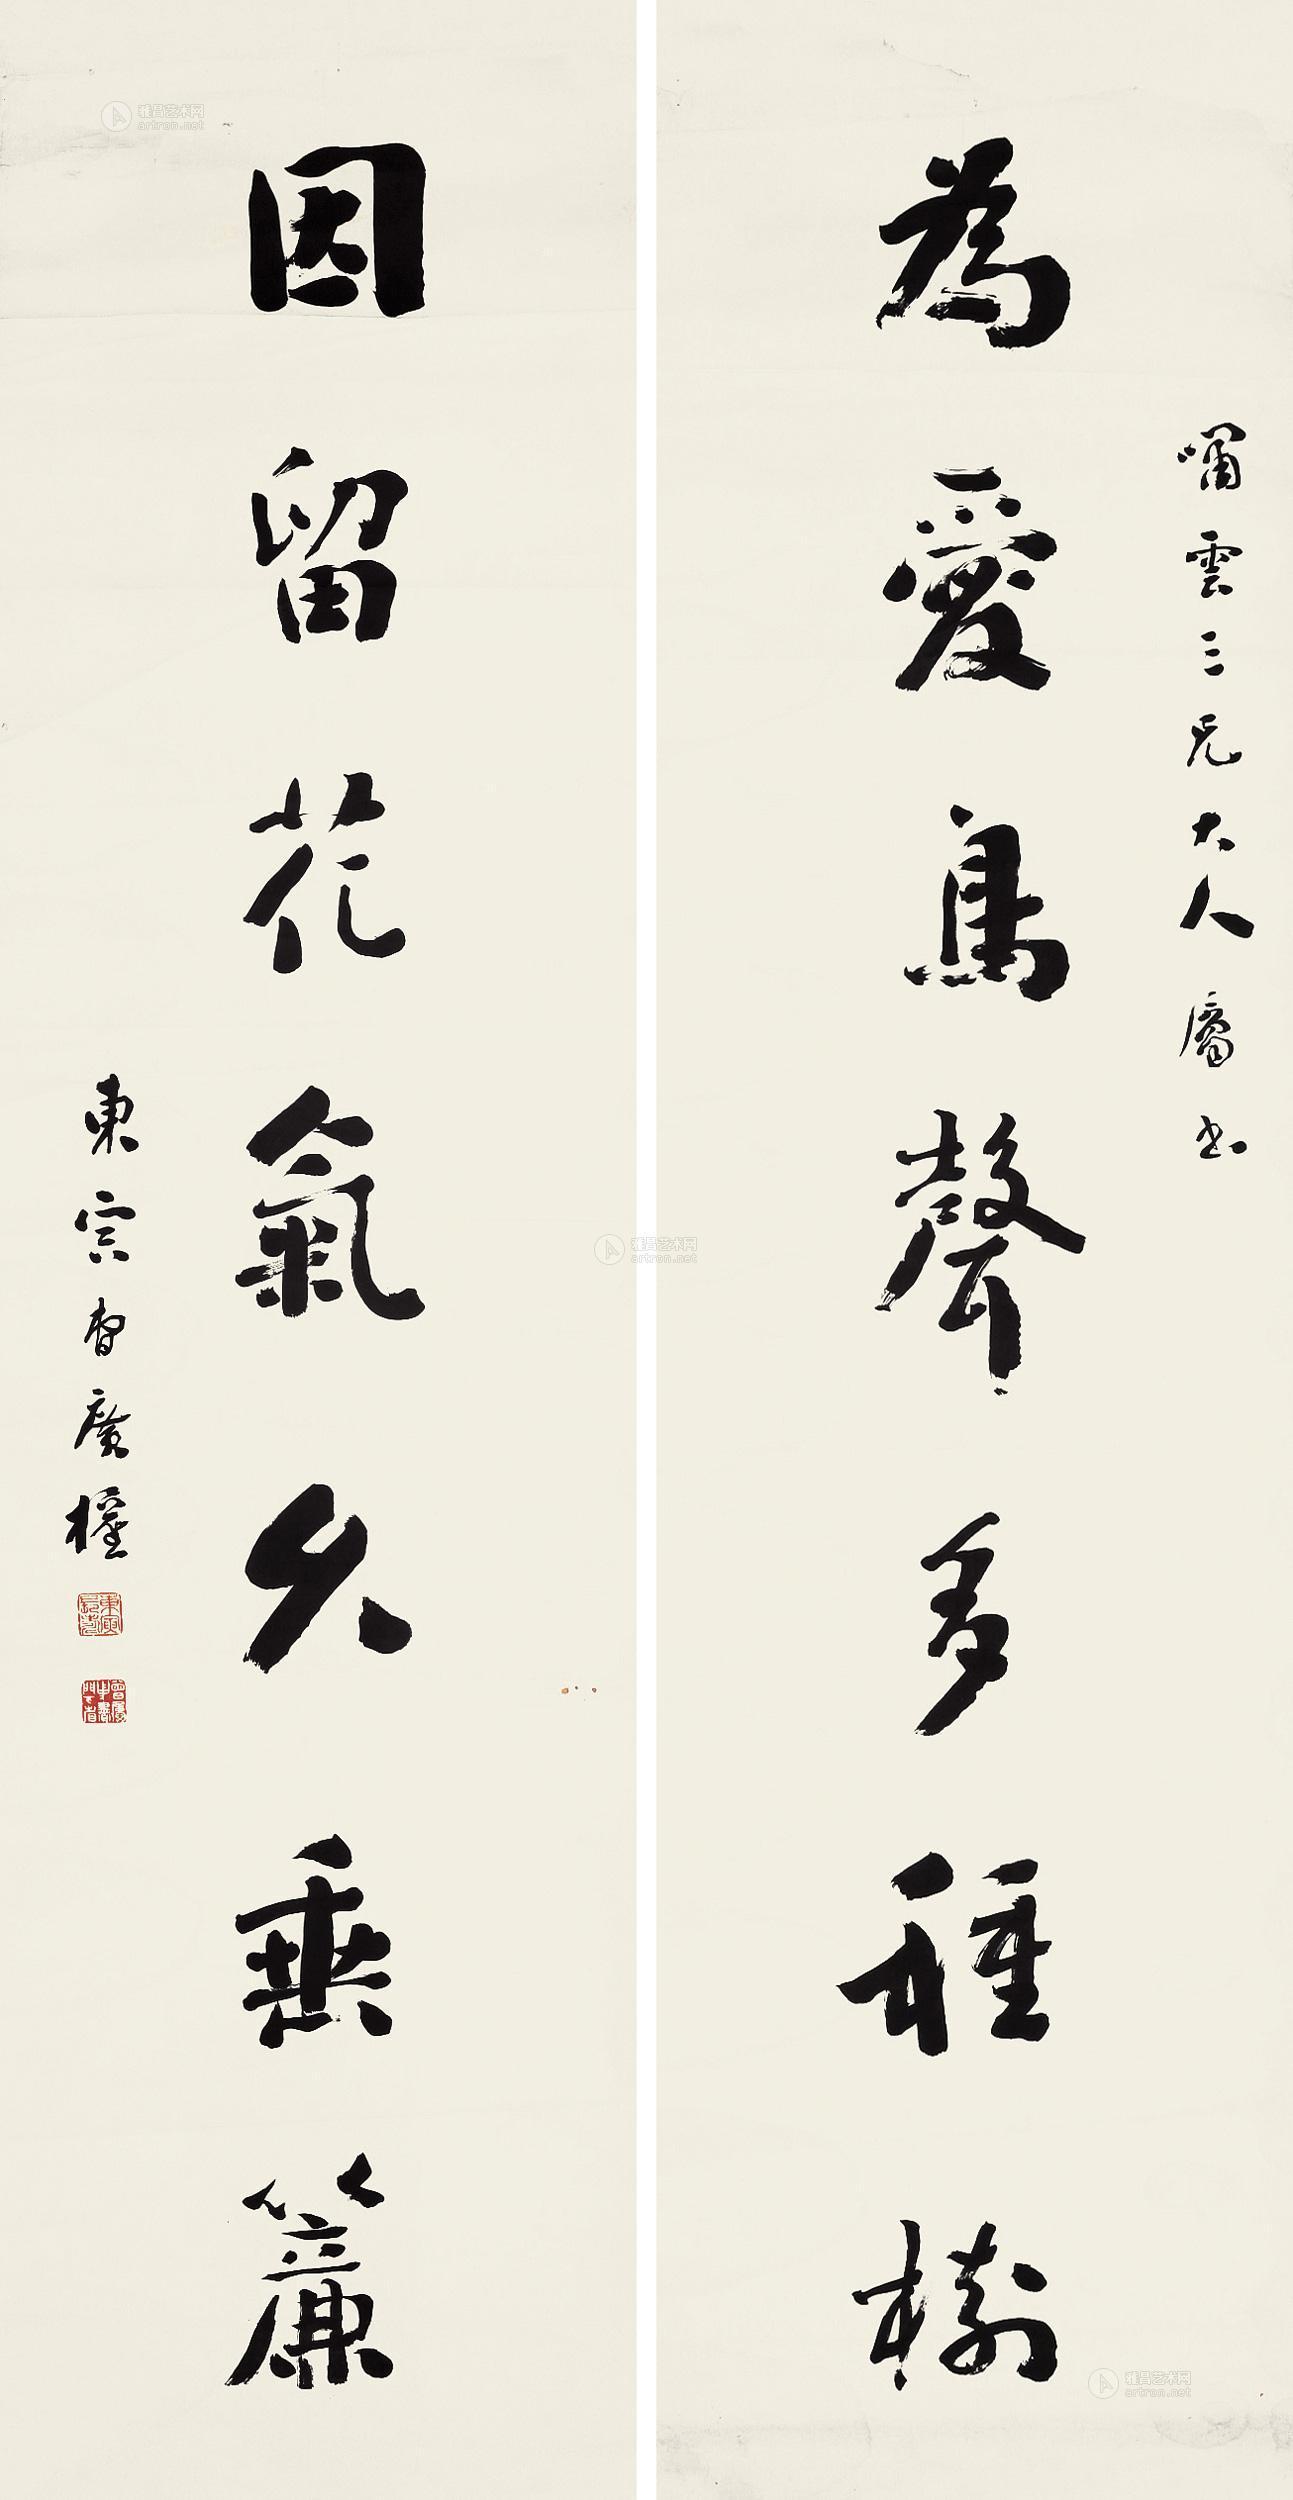 為愛鳥聲多種樹
嘯雲三兄大人屬書
因留花氣久垂簾
東寅曾廣權
雅昌艺术网
artron.net
雅昌艺术网
artron.net
雅昌艺术网
artron.net